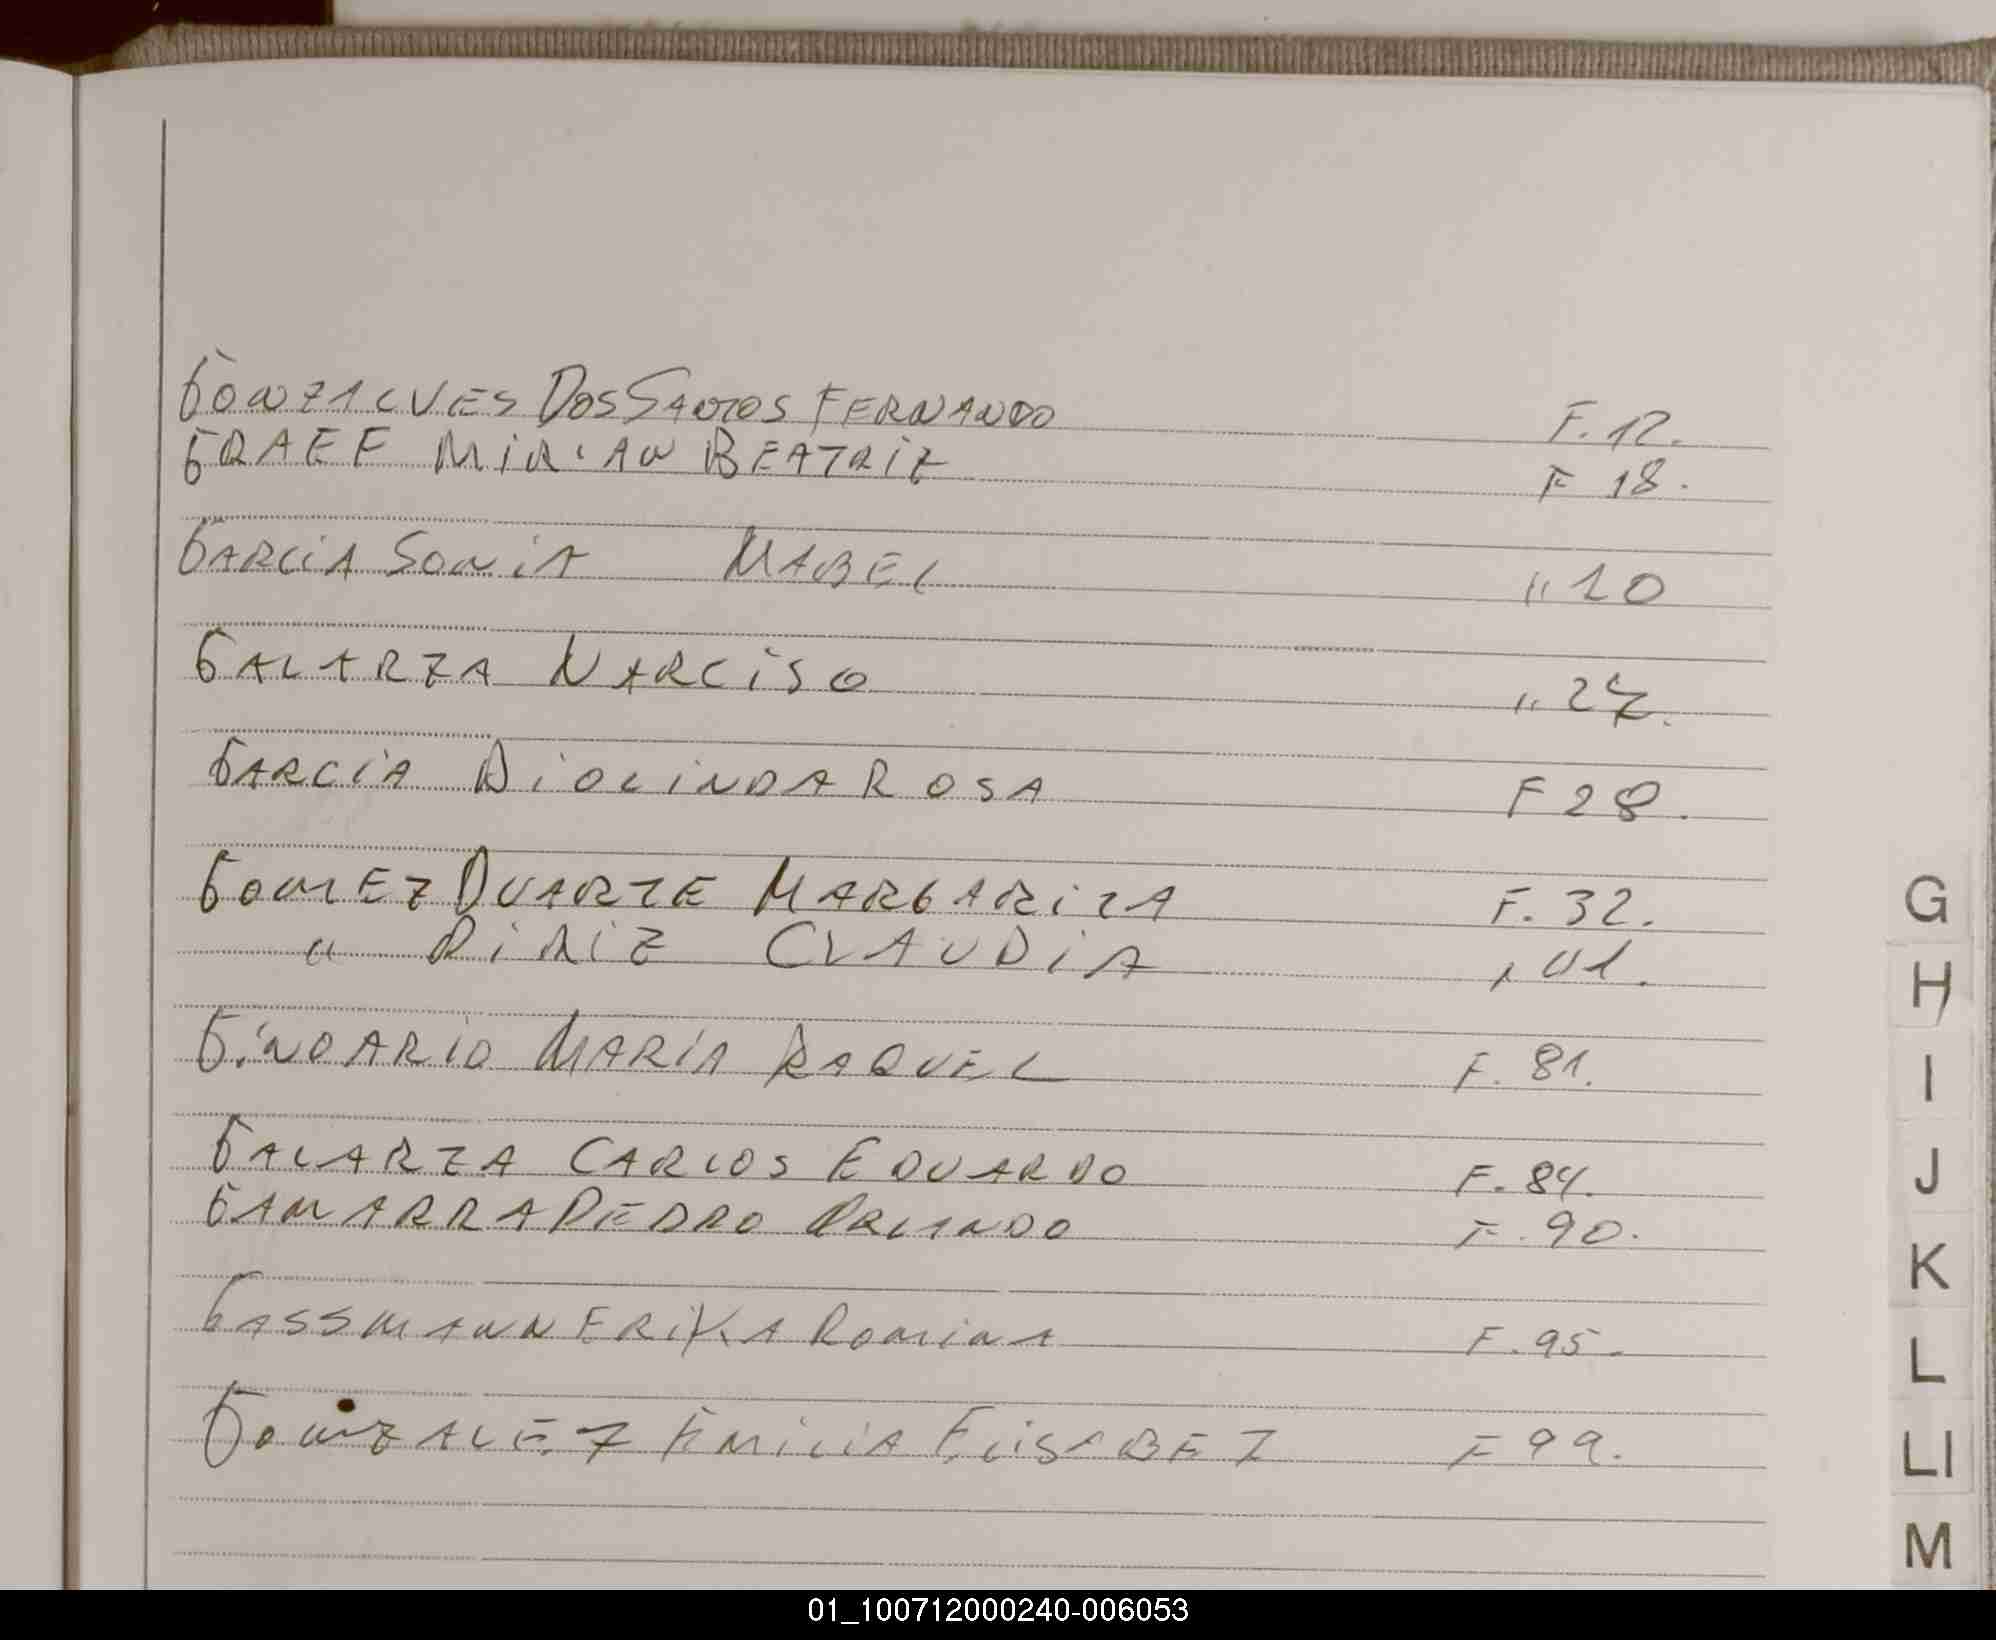 GONZALVES DOS SANTOS FERNANDO F. 12.
GRAEF MIRIAN BEATRIZ F 18.
GARCIA SONIA MABEL " 20
GALARZA NARCISO " 27.
GARCIA DIOLINDA ROSA F 28.
GOMEZ DUARTE MARGARITA F. 32.
" CLAUDIA
GINDARIO MARIA RAQUEL F. 81.
GALARZA CARLOS EDUARDO F. 84.
GAMARRA PEDRO ORLANDO F. 90.
GASSMANN ERIKA ROMINA F. 95.
GONZALEZ EMILIA ELISABET F 99.
G
H
I
J
K
L
Ll
M
01_100712000240-006053